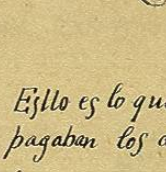 Esllo es lo qu
pagaban los